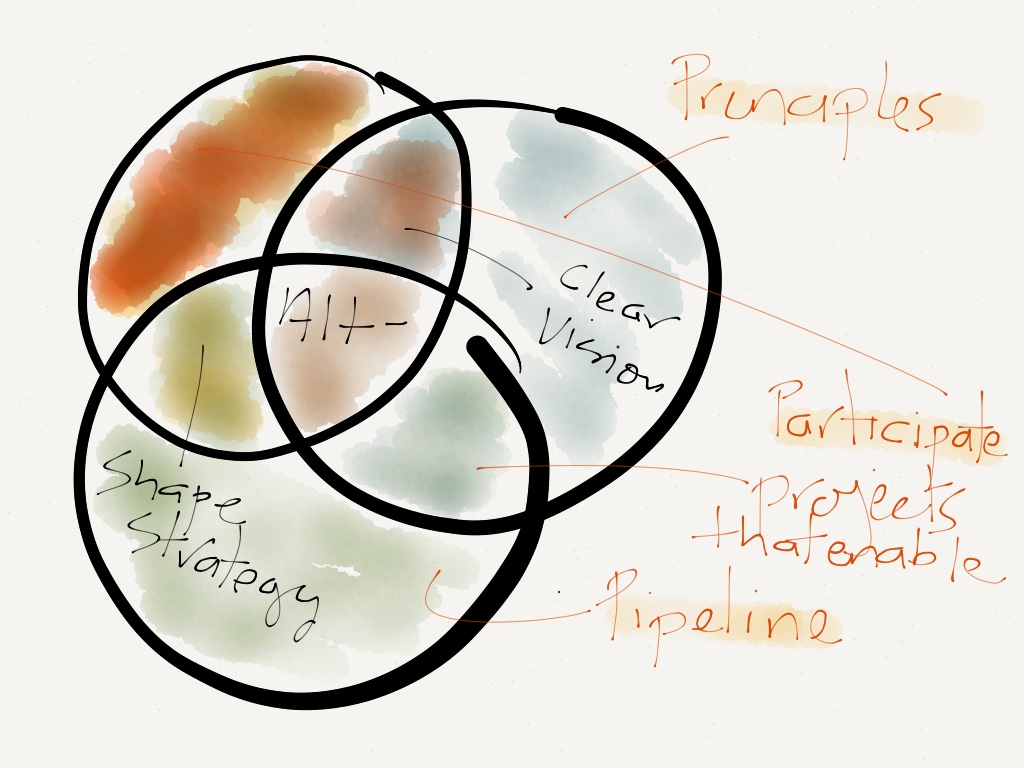 Principles
Clear
Vision
Alt-
Participate
projects
that enable
Shape
Strategy
Pipeline